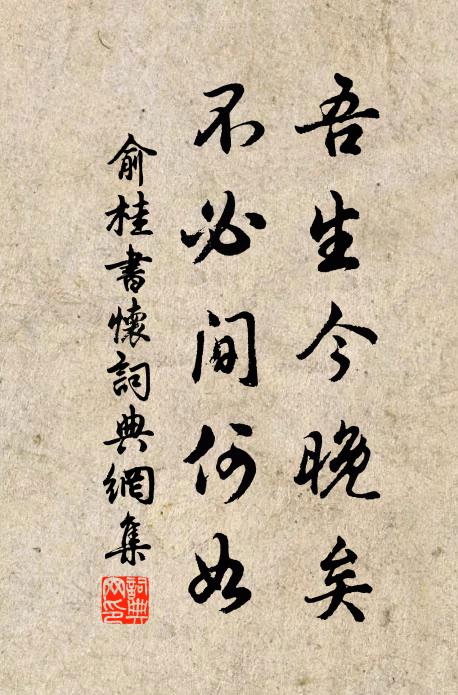 吾生今晚矣
不必問何如
俞桂書懷詞典網集
詞典
网印